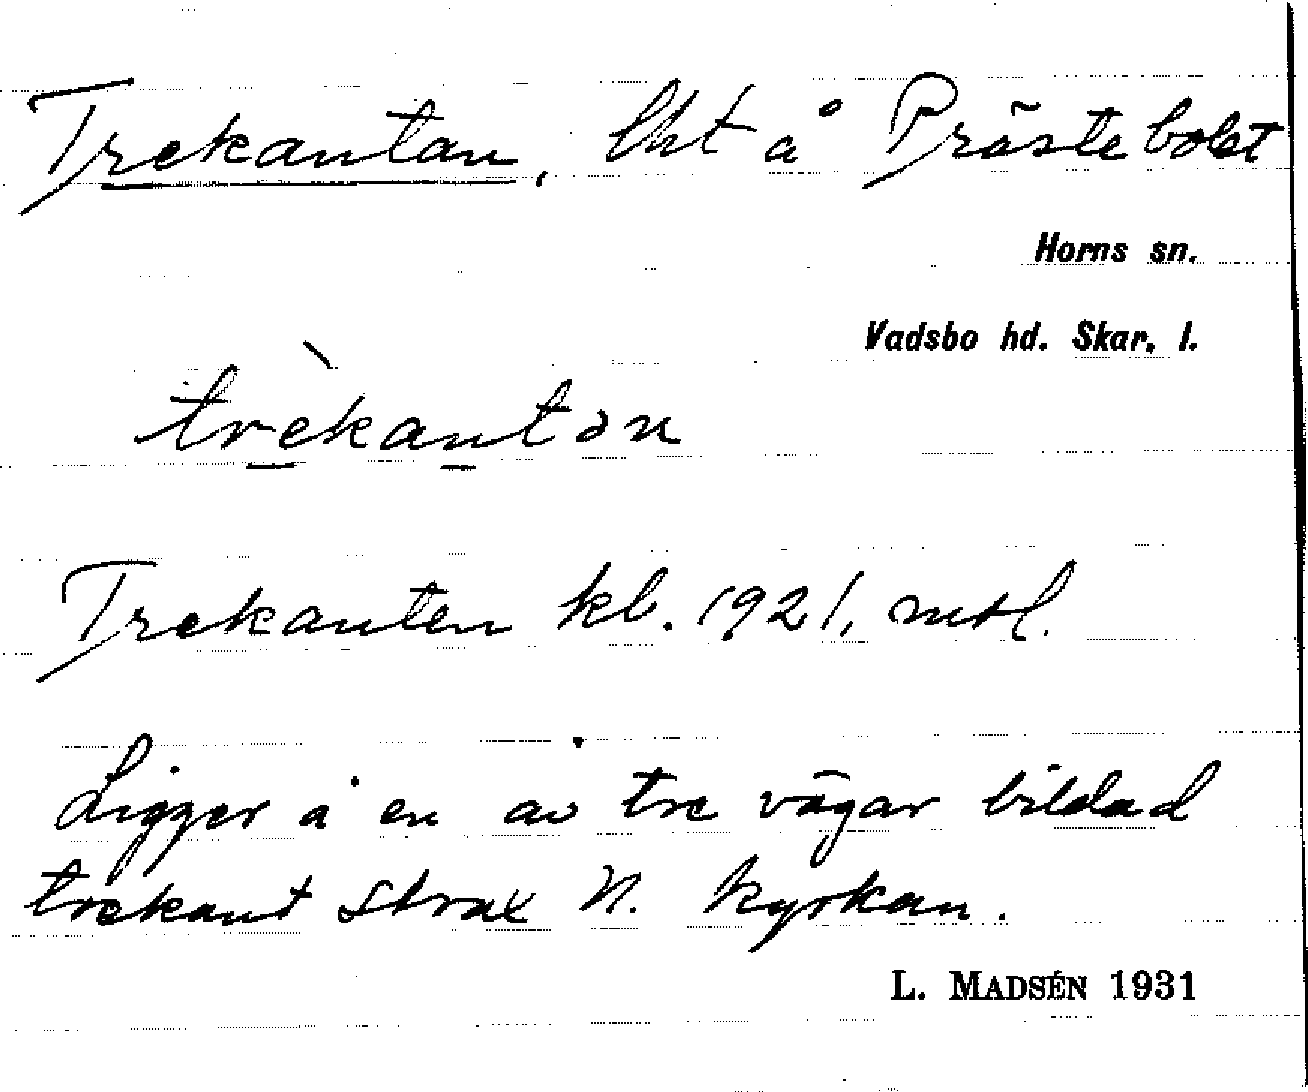 Trekantan, lht å Prästebolet
Horns sn.
Vadsbo hd. Skar. l.
trèkantən
Trekanten kb. 1921, mtl.
Ligger å en av tre vägar bildad
trekant strax N. kyrkan.
L. MADSÉN 1931